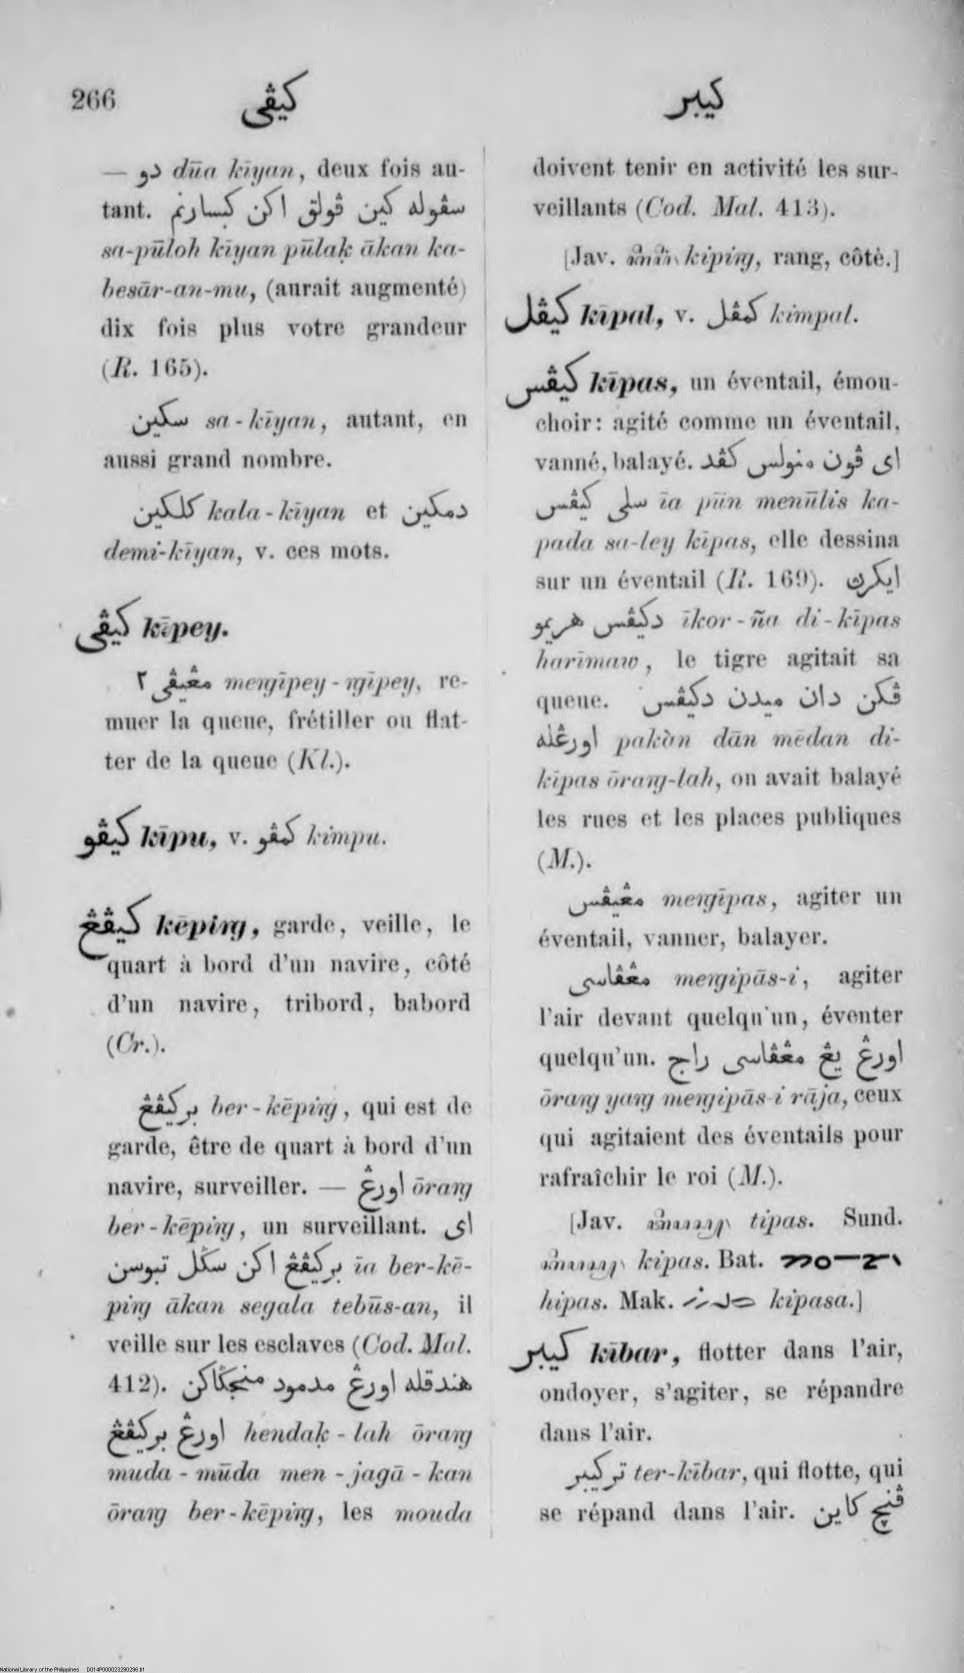 266 كيڤى كيبر
— دو dūa kīyan, deux fois au-
tant. سڤوله كين ڤولق اكن كبسارنم
sa-pūloh kīyan pūlaḳ ākan ka-
besār-an-mu, (aurait augmenté)
dix fois plus votre grandeur
(R. 165).
سكين sa-kīyan, autant, en
aussi grand nombre.
كلكين kala-kīyan et دمكين
demi-kīyan, v. ces mots.
كيڤى kīpey.
مڠيڤى٢ meṅgīpey-ṅgīpey, re-
muer la queue, frétiller ou flat-
ter de la queue (Kl.).
كيڤو kīpu, v. كمڤو kimpu.
كيڤڠ kēpiṅg, garde, veille, le
quart à bord d'un navire, côté
d'un navire, tribord, babord
(Cr.).
بركيڤڠ ber-kēpiṅg, qui est de
garde, être de quart à bord d'un
navire, surveiller. — اورڠ ōraṅg
ber-kēpiṅg, un surveillant. اى
بركيڤڠ اكن سڬل تبوسن īa ber-kē-
piṅg ākan segala tebūs-an, il
veille sur les esclaves (Cod. Mal.
412). هندقله اورڠ مدمود منجڬاكن
اورڠ بركيڤڠ hendaḳ-lah ōraṅg
muda-mūda men-jagā-kan
ōraṅg ber-kēpiṅg, les mouda
doivent tenir en activité les sur-
veillants (Cod. Mal. 413).
[Jav. kipiṅg, rang, côté.]
كيڤل kīpal, v. كمڤل kimpal.
كيڤس kīpas, un éventail, émou-
choir: agité comme un éventail,
vanné, balayé. اى ڤون منولس كڤد
سلى كيڤس īa pūn menūlis ka-
pada sa-ley kīpas, elle dessina
sur un éventail (R. 169). ايكرڽ
دكيڤس هريمو īkor-ña di-kīpas
harīmaw, le tigre agitait sa
queue. ڤكن دان ميدن دكيڤس
اورڠله pakàn dān mēdan di-
kīpas ōraṅg-lah, on avait balayé
les rues et les places publiques
(M.).
مڠيڤس meṅgīpas, agiter un
éventail, vanner, balayer.
مڠڤاسى meṅgipās-i, agiter
l'air devant quelqu'un, éventer
quelqu'un. اورڠ يڠ مڠڤاسى راج
ōraṅg yaṅg meṅgipās-i rāja, ceux
qui agitaient des éventails pour
rafraîchir le roi (M.).
[Jav. tipas. Sund.
kipas. Bat.
hipas. Mak. kipasa.]
كيبر kībar, flotter dans l'air,
ondoyer, s'agiter, se répandre
dans l'air.
تركيبر ter-kībar, qui flotte, qui
se répand dans l'air. ڤنچ كاين
National Library of the Philippines